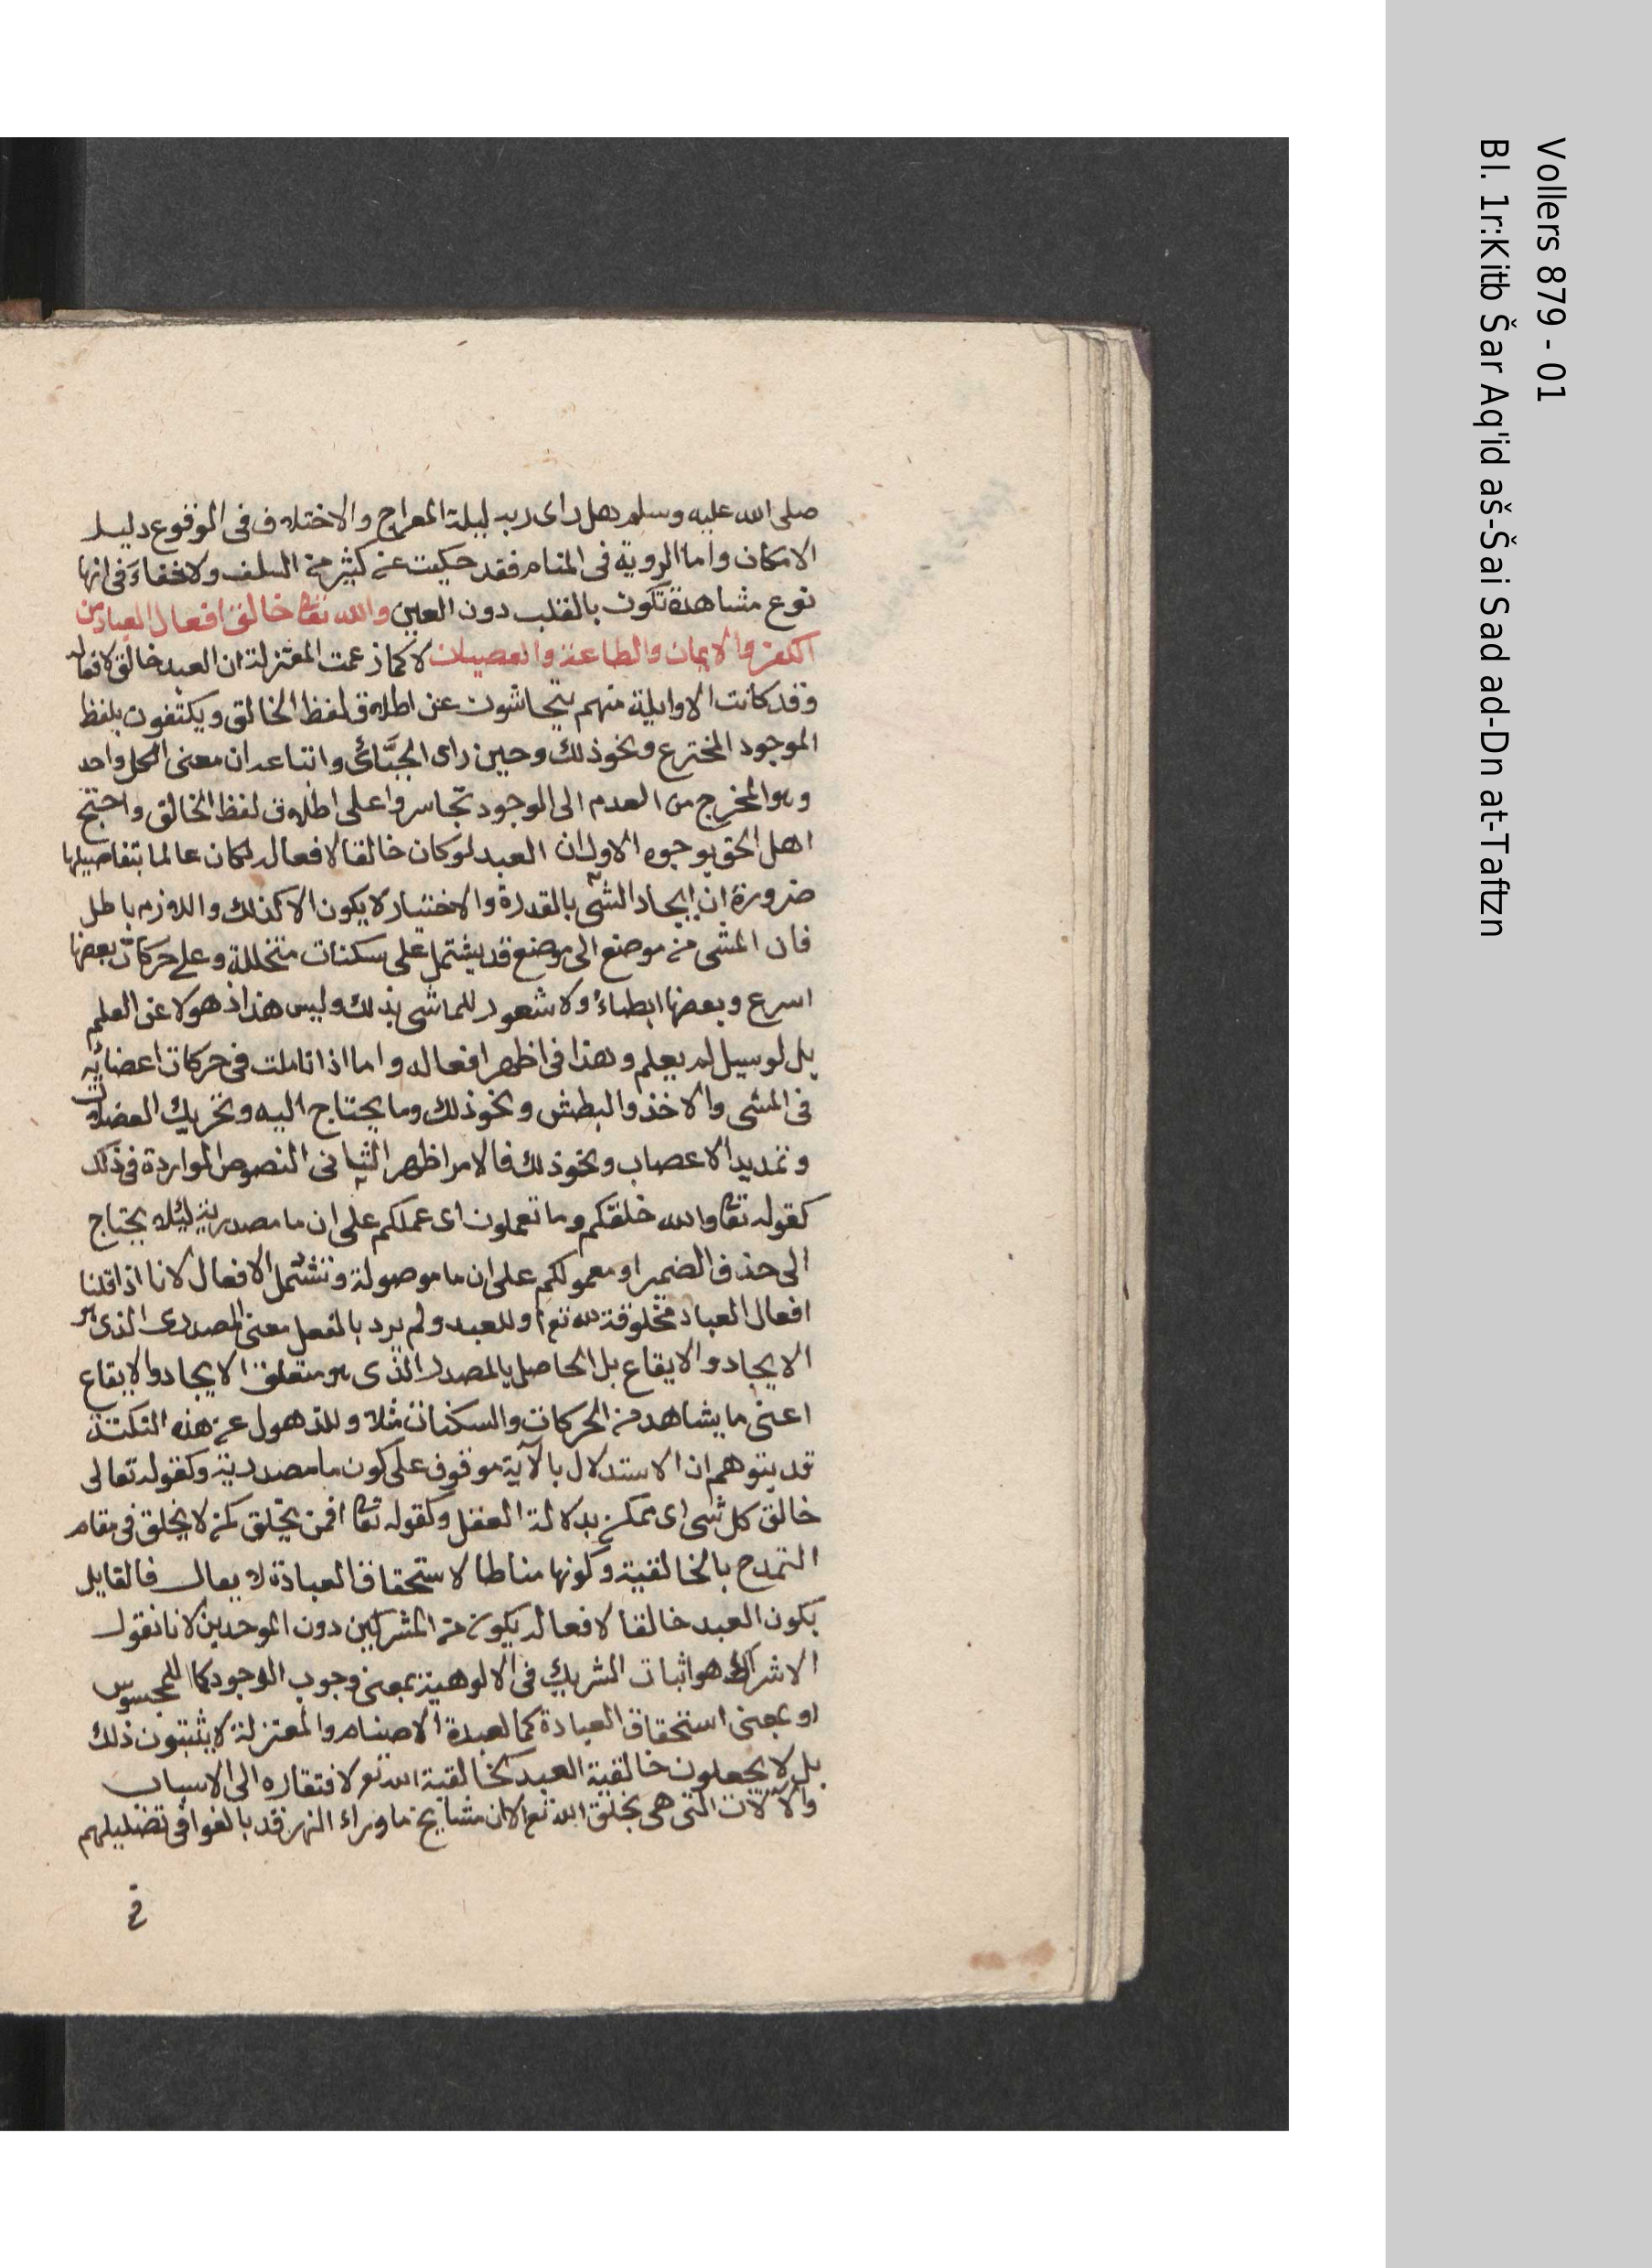 صلى الله عليه وسلم هل راى ربه ليلة المعراج والاختلاف فى الوقوع دليل
الامكان واما الروية فى المنام فقد حكيت عن كثير من السلف ولا خفاء فى انها
نوع مشاهدة تكون بالقلب دون العين والله تعالى خالق افعال العباد من
الكفر والايمان والطاعة والعصيان لا كما زعمت المعتزلة ان العبد خالق لافعاله
وقد كانت الاوايلية منهم يتحاشون عن اطلاق لفظ الخالق ويكتفون بلفظ
الموجود المخترع ونحو ذلك وحين راى الجبَّائى واتباعه ان معنى الكل واحد
وهو المخرج من العدم الى الوجود تجاسروا على اطلاق لفظ الخالق واحتج
اهل الحق بوجوه الاول ان العبد لو كان خالقا لافعاله لكان عالما بتفاصيلها
ضرورة ان ايجاد الشى بالقدرة والاختيار لا يكون الا كذلك واللازم باطل
فان المشى من موضع الى موضع قد يشتمل على سكنات متخللة وعلى حركات بعضها
اسرع وبعضها ابطاء ولا شعور للماشى بذلك وليس هذا ذهولا عن العلم
بل لو سيل لم يعلم وهذا فى اظهر افعاله واما اذا تاملت فى حركات اعضائه
فى المشى والاخذ والبطش ونحو ذلك وما يحتاج اليه وتحريك العضلات
وتمديد الاعصاب ونحو ذلك فالامر اظهر الثانى النصوص الواردة فى ذلك
كقوله تعالى والله خلقكم وما تعملون اى عملكم على ان ما مصدرية ليلا يحتاج
الى حذف الضمير او معمولكم على ان ما موصولة وتشتمل الافعال لانا اذا قلنا
افعال العباد مخلوقة لله تع او للعبد ولم يرد بالفعل معنى المصدرى الذى هو
الايجاد والايقاع بل الحاصل بالمصدر الذى هو متعلق الايجاد والايقاع
اعنى ما يشاهد من الحركات والسكنات مثلا وللذهول عن هذه النكتة
قد يتوهم ان الاستدلال بالآية موقوف على كون ما مصدرية وكقوله تعالى
خالق كل شى اى ممكن بدلالة العقل وكقوله تعالى افمن يخلق كمن لا يخلق فى مقام
التمدح بالخالقية وكونها مناطا لاستحقاق العبادة لا يقال فالقايل
بكون العبد خالقا لافعاله يكون من المشركين دون الموحدين لانا نقول
الاشراك هو اثبات الشريك فى الالوهية بمعنى وجوب الوجود كما للمجوس
او بمعنى استحقاق العبادة كما لعبدة الاصنام والمعتزلة لا يثبتون ذلك
بل لا يجعلون خالقية العبد كخالقية الله تع لافتقاره الى الاسباب
والآلات التى هى بخلق الله تع الا ان مشايخ ما وراء النهر قد بالغوا فى تضليلهم
فى
Vollers 879 - 01
Bl. 1r:Kitb Šar Aq'id aš-Šai Sad ad-Dn at-Taftzn